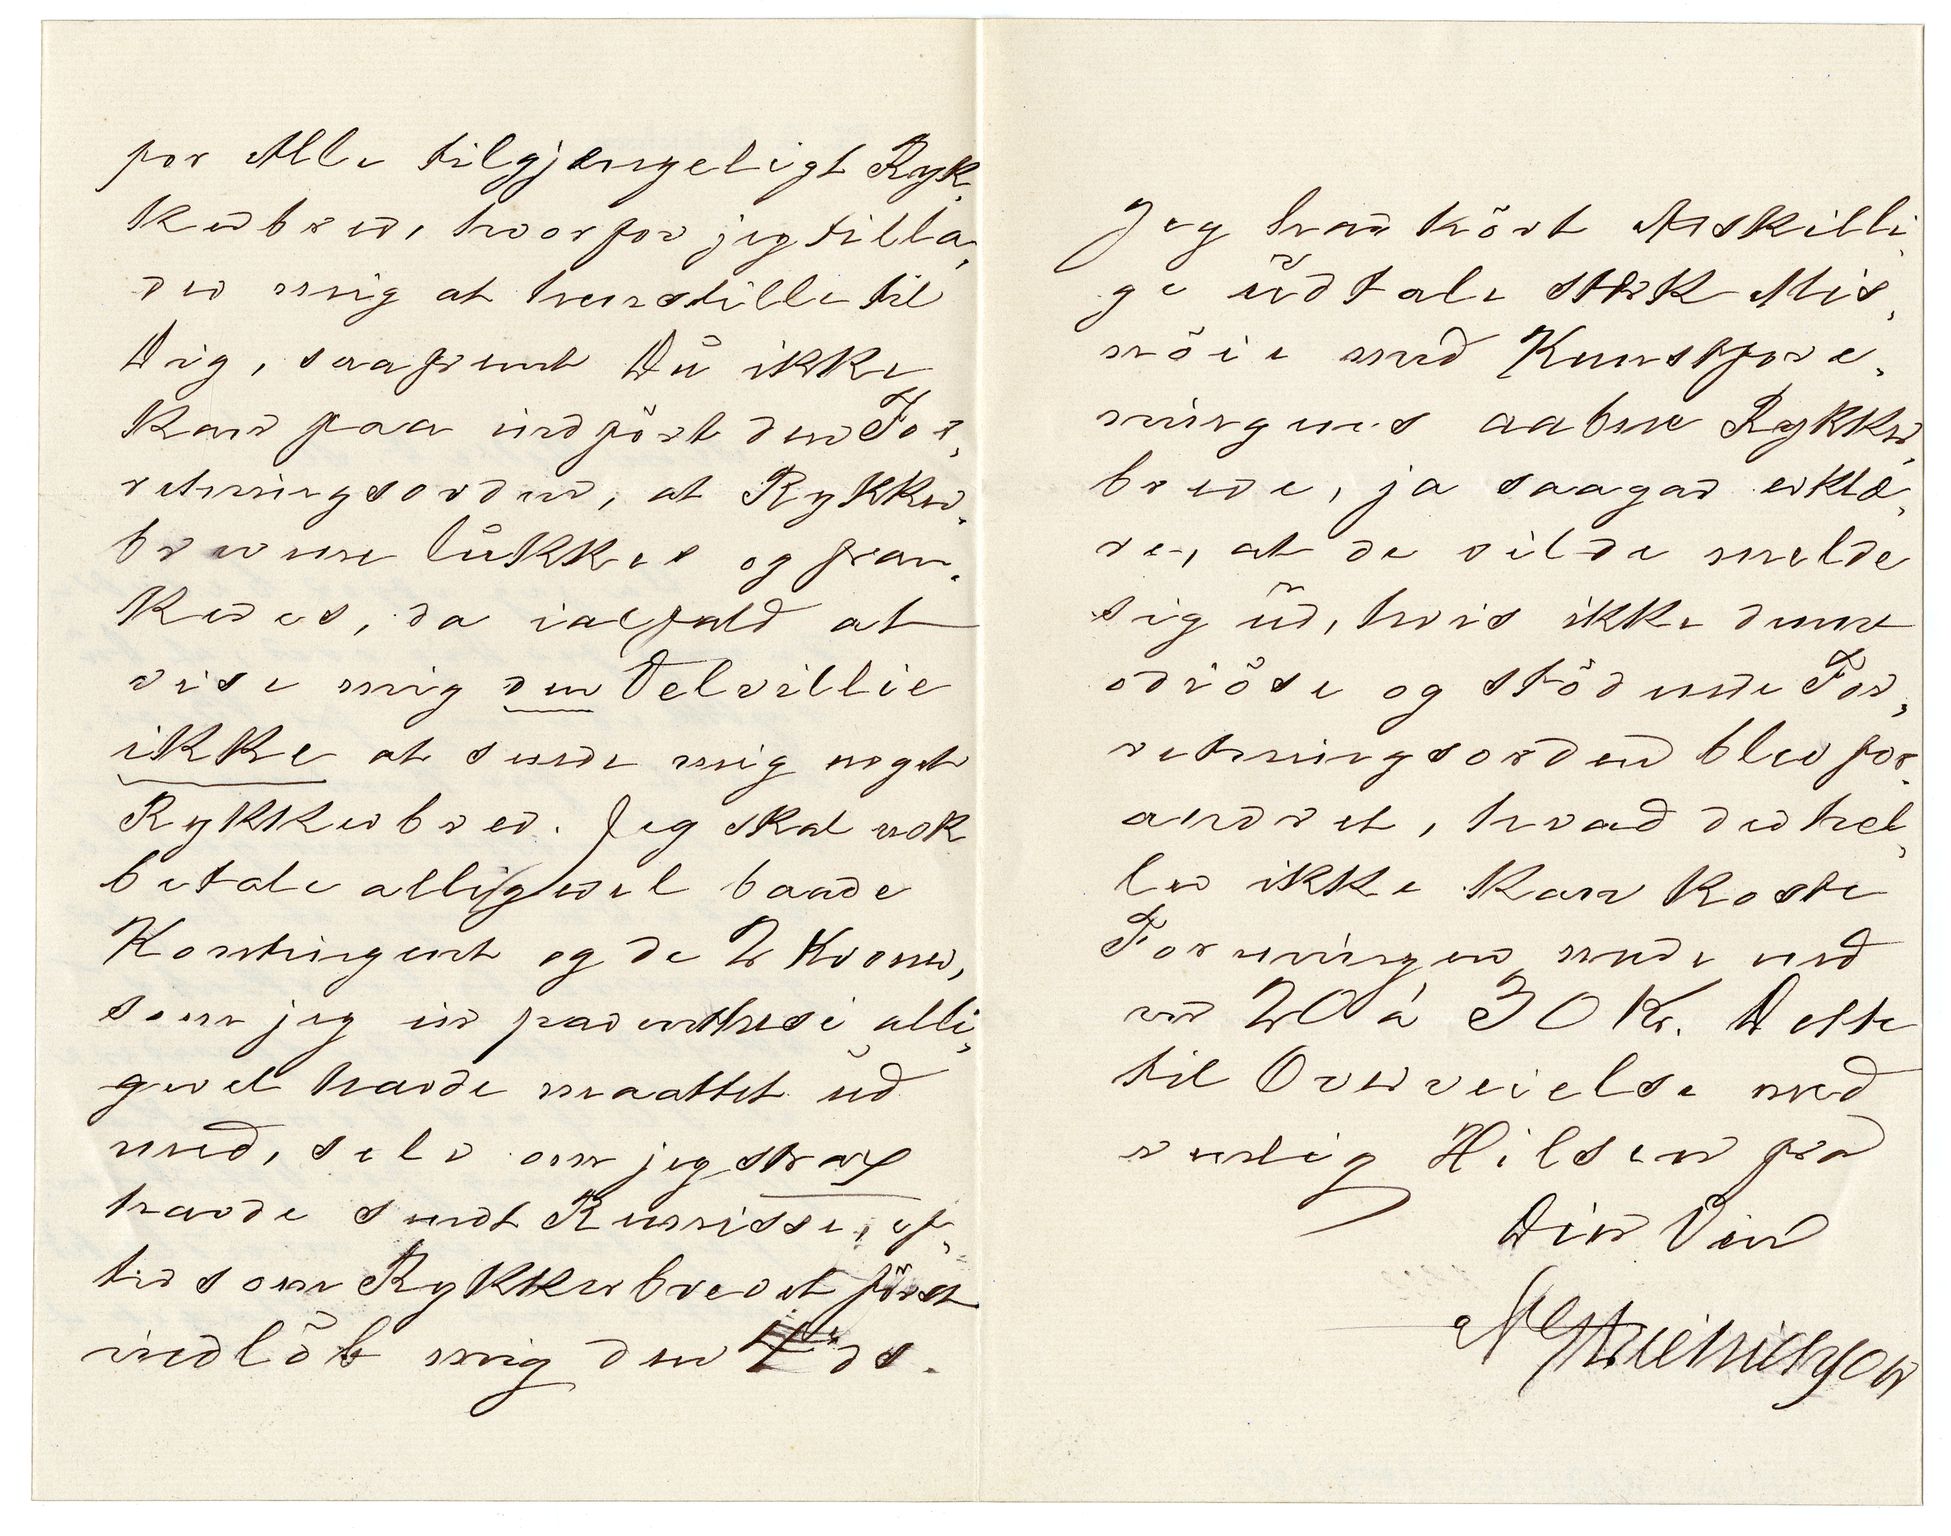 for Alle tilgjængeligt Ryk,
kerbrev, hvorfor jeg tilla,
der mig at henstille til
Dig, saafremt Du ikke
kan faa indført den For,
retningsorden, at Rykker,
brevene lukkes og fran,
keres, da ialfald at
vise mig den Velvillie
ikke at sende mig noget
Rykkerbrev. Jeg skal nok
betale alligevel baade
Kontingent og de 2 Kroner,
som jeg in parenthesi alli,
gevel havde maattet ud
med, selv om jeg strax
havde sendt Remisse, ef,
tersom Rykkerbrevet først
indløb mig den ds.
Jeg har hørt Adskilli,
ge udtale stærk Mis,
nøie med Kunstfore,
ningens aabne Rykker,
breve, ja saagar erklæ,
re, at de vilde melde
sig ud, hvis ikke denne
odiøse og stødende For,
retningsorden blev for,
andret, hvad der hel,
ler ikke kan koste
Foreningen mere end
en 20 à 30 Kr. Dette
til Overveielse med
venlig Hilsen fra
Din Ven